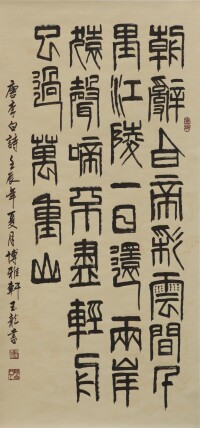 朝辭白帝彩雲間千
里江陵一日還兩岸
猿聲啼不盡輕舟
已過萬重山
唐李白詩壬辰年夏月博雅軒王書